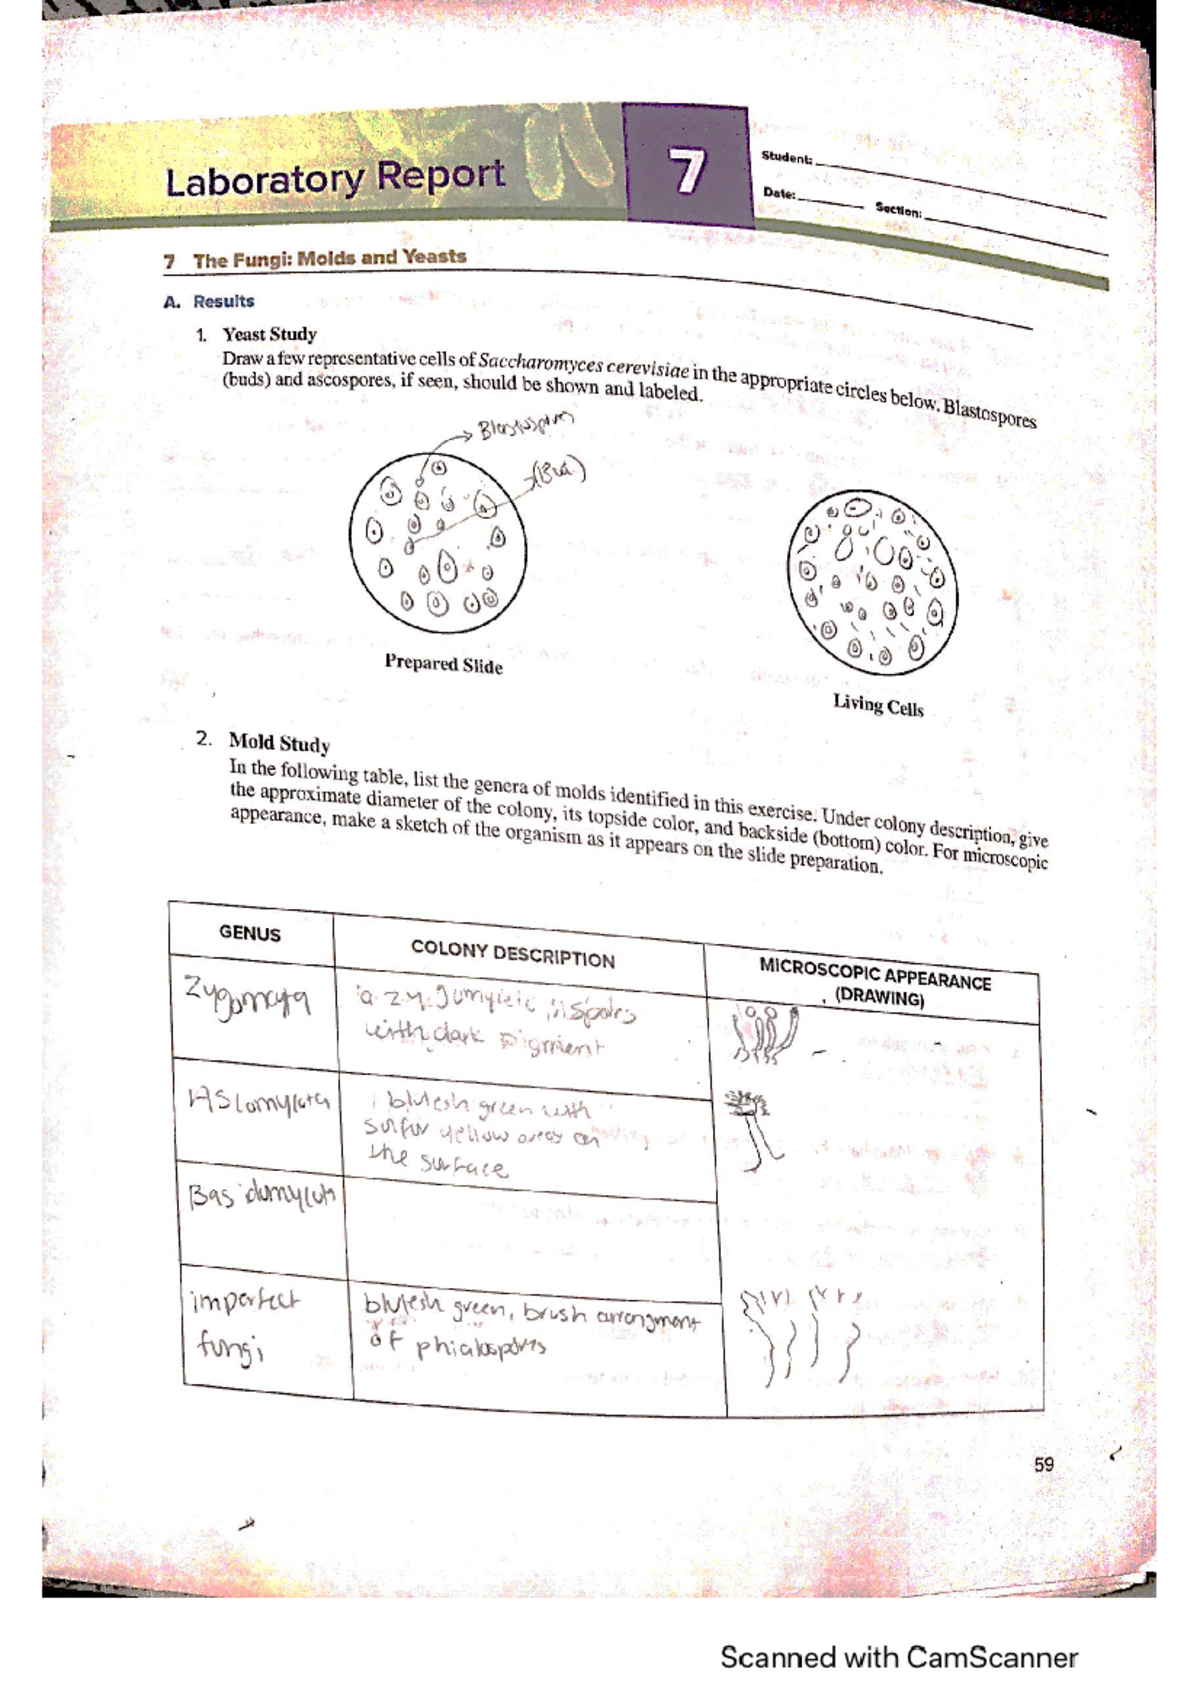 Laboratory Report
7
Student:
Date: Section:
7 The Fungi: Molds and Yeasts
A. Results
1. Yeast Study
Draw a few representative cells of Saccharomyces cerevisiae in the appropriate circles below. Blastospores
(buds) and ascospores, if seen, should be shown and labeled.
(Bud)
Prepared Slide
Living Cells
2. Mold Study
In the following table, list the genera of molds identified in this exercise. Under colony description, give
the approximate diameter of the colony, its topside color, and backside (bottom) color. For microscopic
appearance, make a sketch of the organism as it appears on the slide preparation.
GENUS
COLONY DESCRIPTION
MICROSCOPIC APPEARANCE
(DRAWING)
Zygomcyta
a
with dark pigment
bluesh green with
sulfur yellow areas on
the surface
imperfect
fungi
bluesh green, brush arrangment
of phialospores
59
Scanned with CamScanner